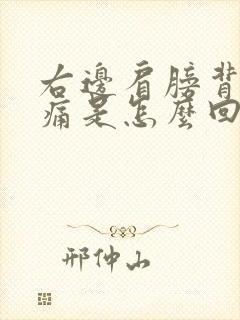 右邊肩膀背
痛是怎麼回
邢仲山